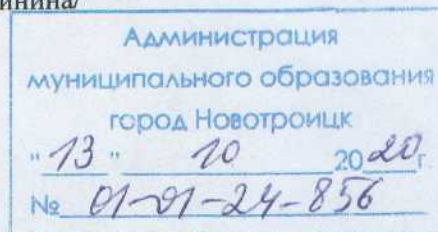 инина/
Администрация
муниципального образования
город Новотроицк
"13" 10 2020г.
№ 01-01-24-856